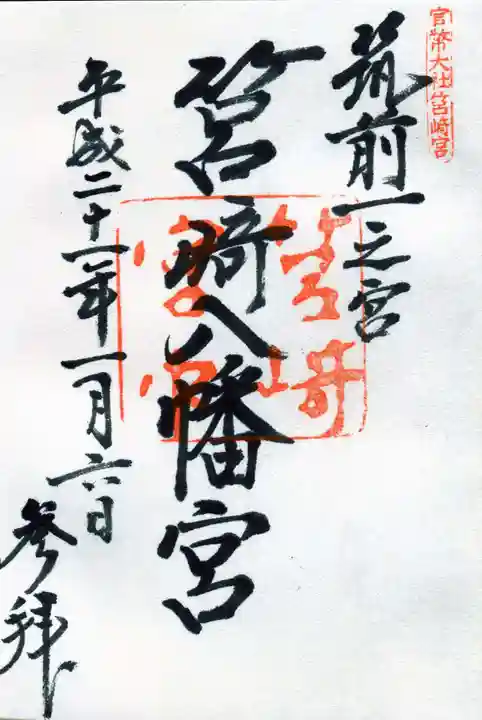 官幣大社筥崎宮
筑前一之宮
筥崎八幡宮
筥崎宮
平成二十一年一月六日
参拜